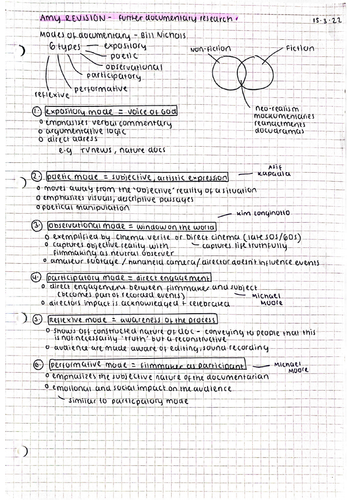 AMY REVISION - further documentary research.
15·3·22
Modes of documentary - Bill Nichols
6 types
expository
poetic
observational
participatory
performative
reflexive
non-fiction
fiction
neo-realism
mockumentaries
reenactments
docudramas
1. expository mode = voice of God
emphasises verbal commentary
argumentative logic
direct adress
e.g TV news, nature docs
2. poetic mode = subjective, artistic expression
Asif Kapadia
moves away from the "objective" reality of a situation
emphasises visuals, descriptive passages
poetical manipulation
3. observational mode = window on the world
Kim Longinotto
exemplified by cinema verite or direct cinema (late 50s/60s)
captures objective reality with
filmmaking as neutral observer
captures life truthfully
amateur footage / handheld camera / director doesn't influence events
4. participatory mode = direct engagement
direct engagement between filmmaker and subject
(becomes part of recorded events)
Michael
Moore
directors impact is acknowledged + celebrated
5. Reflexive mode = awareness of the process
shows off constructed nature of doc - conveying to people that this
is not necessarily "truth" but a reconstructive
audience are made aware of editing, sound recording
6. performative mode = filmmaker as participant
Michael
Moore
emphasizes the subjective nature of the documentarian
emotional and social impact on the audience
similar to participatory mode